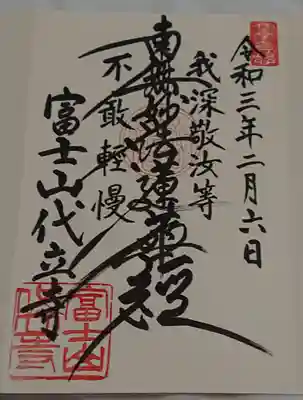 令和三年二月六日
我深敬汝等
南無妙法蓮華経
不敢輕慢
富士山代立寺